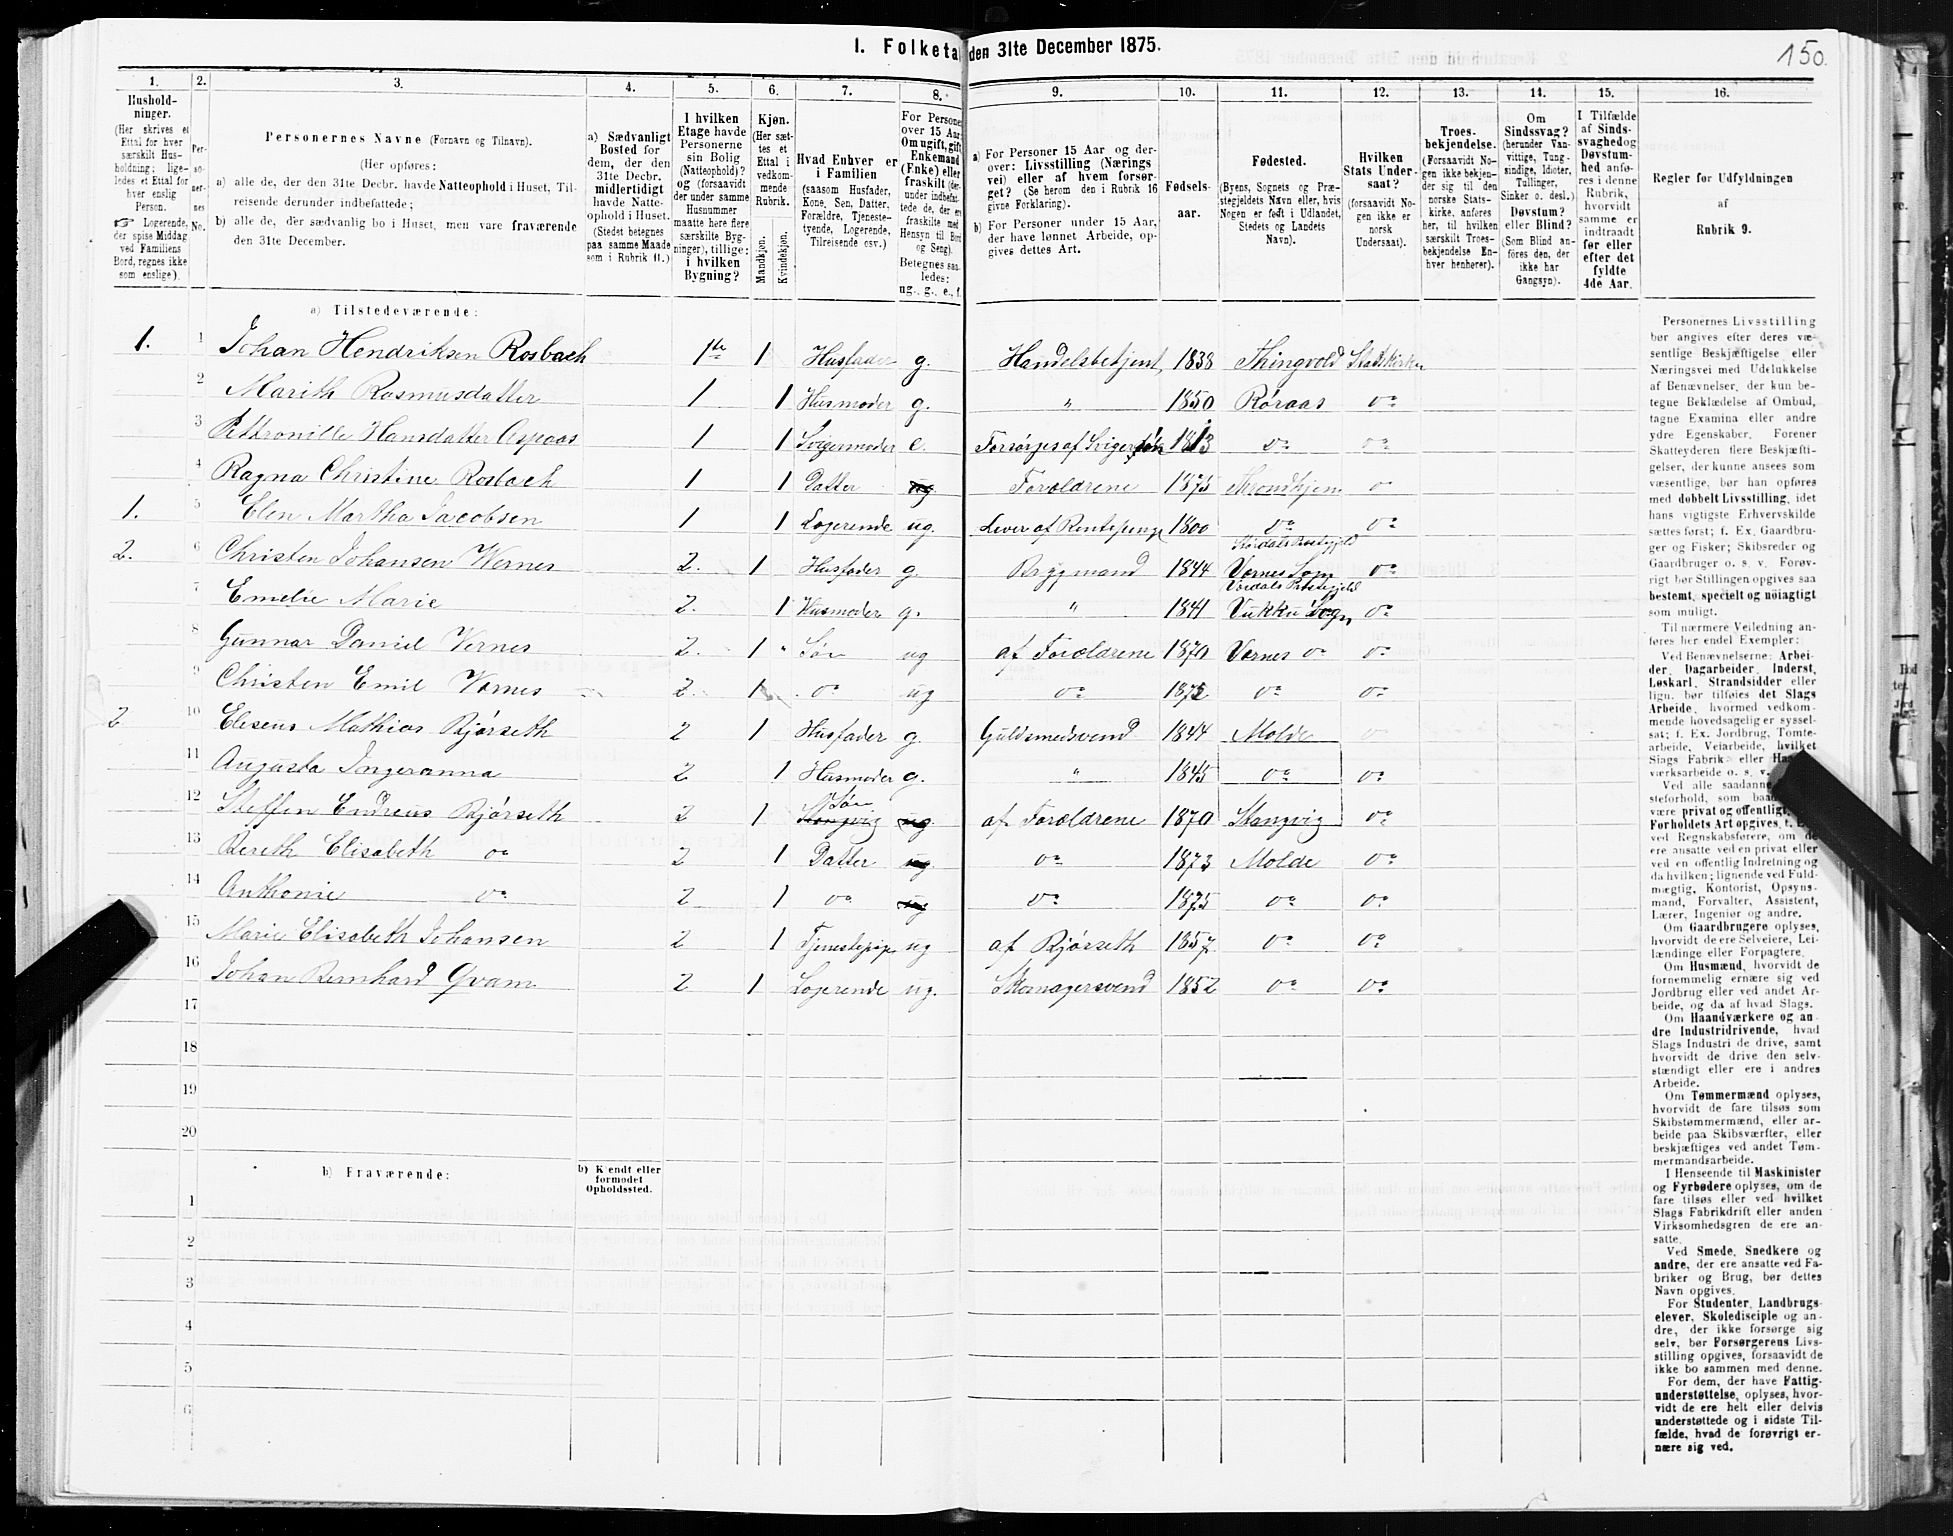 I. Folketa den 31te December 1875.
150.
1. 2. 3. 4. 5. 6. 7. 8. 9. 10. 11. 12. 13. 14. 15. 16.
Hushold-
ninger.
(Her skrives et
Ettal for hver
særskilt Hus-
holdning; lige-
ledes et Ettal for
hver enslig
Person.
☞ Logerende,
der spise Middag
ved Familiens
Bord, regnes ikke
som enslige).
Per-
so-
ner-
nes
No.
Personernes Navne (Fornavn og Tilnavn).
(Her opføres:
a) alle de, der den 31te Decbr. havde Natteophold i Huset, Til-
reisende derunder indbefattede;
b) alle de, der sædvanlig bo i Huset, men vare fraværende
den 31te December.
a) Sædvanligt
Bosted for
dem, der den
31te Decbr.
midlertidigt
havde Natte-
ophold i Huset.
(Stedet betegnes
paa samme Maade
som i Rubrik 11.)
I hvilken
Etage havde
Personerne
sin Bolig
(Natteophold)?
og (forsaavidt
der under samme
Husnummer
maatte here flere
særskilte Byg-
ninger), tillige:
i hvilken
Bygning?
Kjøn.
(Her sæt-
tes et
Ettal i
vedkom-
mende
Rubrik.
Mandkjøn.
Kvindekjøn.
Hvad Enhver er
i Familien
(saasom Husfader,
Kone, Søn, Datter,
Forældre, Tjeneste-
tyende, Logerende,
Tilreisende osv.)
For Persone
over 15 Aar
Om ugift, gift
Enkemand
(Enke) eller
fraskilt (der-
under indbefat-
tede de, der er
fraskilte med
Hensyn til Bord
og Seng).
Betegnes saa-
ledes:
ug., g., e., f.
a) For Personer 15 Aar og der-
over: Livsstilling (Nærings
vei) eller af hvem forsør-
get? (Se herom den i Rubrik 16
givne Forklaring).
b) For Personer under 15 Aar,
der have lønnet Arbeide, op-
gives dettes Art.
Fødsels-
aar.
Fødested.
(Byens, Sognets og Præ-
stegjeldets Navn eller, hvis
Nogen er født i Udlandet,
Stedets og Landets
Navn).
Hvilken
Stats Under-
saat?
(forsaavidt No-
gen ikke er
norsk
Undersaat).
Troes-
bekjendelse.
(Forsaavidt No-
gen ikke bekjen-
der sig til den
norske Stats-
kirke, anføres
her, til hvilken
særskilt Troes-
bekjendelse En-
hver henhører).
Om
Sindssvag?
(herunder Van-
vittige, Tung-
sindige, Idioter,
Tullinger,
Sinker o. desl.)
Døvstum?
eller Blind?
(Som Blind an-
føres den, der
ikke har
Gangsyn).
I Tilfælde
af Sinds-
svaghedog
Døvstum-
hed anfø-
res i denne
Rubrik,
hvorvidt
samme er
indtraadt
før eller
efter det
fyldte
4de Aar.
Regler for Udfyldningen
af
Rubrik 9.
a) Tilstedeværende:
1. 1 Johan Hendriksen Rosbach 1te 1 Husfader g. Handelsbetjent 1838 Thingvold Statskirken
2 Marith Rasmusdatter 1 1 Husmoder g. " 1850 Røraas do
3 Pettronille Hansdatter Aspaas 1 1 Svigermoder e. Forsørges af Svigersøn 1813 do do
4 Ragna Christine Rosbach 1 1 Datter ug. Forældrene 1875 Throndhjem do
1. 5 Elen Martha Jacobsen 1 1 Logerende ug. Lever af Rentepenge 1800 do do
2. 6 Christen Johansen Wernes 2. 1 Husfader g. Brygmand 1844 Størdals Prestegjeld Værnes Sogn do
7 Emelie Marie 2. 1 Husmoder g. " 1841 Værdals Prestegjeld Vukku Sogn do
8 Gunnar Daniel Vernes 2. 1 " Søn ug af Forældrene 1870 Værnes do do
9 Christen Emil Værnes 2. 1 do ug do 1872 do do
2 10 Eliseus Mathias Bjørseth 2 1 Husfader g. Guldsmedsvend 1844 Molde do
11 Augusta Ingeranna 2 1 Husmoder g. " 1845 do do
12 Steffen Endreus Bjørseth 2 1 Søn Stangvig ug af Forældrene 1870 Stangvig do
13 Bereth Elisabeth do 2 1 Datter ug do 1873 Molde do
14 Anthonie do 2 1 do ug do 1875 do do
15 Marie Elisabeth Johansen 2 1 Tjenestepige ug af Bjørseth 1857 do do
16 Johan Bernhard Qvam 2 1 Logerende ug. Skomagersvend 1852 do do
17
18
19
20
b) Fraværende:
b) Kjendt eller
formodet
Opholdssted.
1
2
3
4
5
6
Personernes Livsstilling
bør angives efter deres væ-
sentlige Beskjæftigelse eller
Næringsvei med Udelukkelse
af Benævnelser, der kun be-
tegne Beklædelse af Ombud,
tagne Examina eller andre
ydre Egenskaber. Forener
Skatteyderen flere Beskjæfti-
gelser, der kunne ansees som
væsentlige, bør han opføres
med dobbelt Livsstilling, idet
hans vigtigste Erhvervskilde
sættes først; f. Ex. Gaardbru-
ger og Fisker; Skibsreder og
Gaardbruger o. s. v. Forøv-
rigt bør Stillingen opgives saa
bestemt, specielt og nöiagtigt
som muligt.
Til nærmere Veiledning an-
føres her endel Exempler:
Ved Benævnelserne: Arbei-
der, Dagarbeider, Inderst,
Løskarl, Strandsidder eller
lign. bør tilføies det Slags
Arbeide, hvormed vedkom-
mende hovedsagelig er syssel-
sat; f. Ex. Jordbrug, Tomte-
arbeide, Veiarbeide, hvilket
Slags Fabrik- eller Ha
værksarbeide o. s. v.
Ved alle saadanne
steforhold, som baa
være privat og offentligt,
Forholdets Art opgives, t. E
ved Regnskabsførere, om de
ere ansatte ved en privat eller
ved en offentlig Indretning og
da hvilken; lignende ved Fuld-
mægtig, Kontorist, Opsyns-
mand, Forvalter, Assistent,
Lærer, Ingeniør og andre.
Om Gaardbrugere oplyses,
hvorvidt de ere Selveiere, Lei-
lændinge eller Forpagtere.
Om Husmænd, hvorvidt de
fornemmelig ernære sig ved
Jordbrug eller ved andet Ar-
beide, og da af hvad Slags.
Om Haandværkere og an
dre Industridrivende, hvad
Slags Industri de drive, samt
hvorvidt de drive den selv-
stændigt eller ere i andres
Arbeide.
Om Tømmermænd oplyses,
hvorvidt de fare tilsøs som
Skibstømmermænd, eller ar-
beide paa Skibsværfter, eller
beskjæftiges ved andet Tøm-
mermandsarbeide.
I Henseende til Maskinister
og Fyrbødere oplyses, om de
fare tilsøs eller ved hvilket
Slags Fabrikdrift eller anden
Virksomhedsgren de ere an-
satte.
Ved Smede, Snedkere og
andre, der ere ansatte ved Fa-
briker og Brug, bør dettes
Navn opgives.
For Studenter, Landbrugs-
elever, Skoledisciple og an-
dre, der ikke forsørge sig
selv, bør Forsørgerens Livs-
stilling opgives, forsaavidt de
ikke bo sammen med denne.
For dem, der have Fattig-
understøttelse, oplyses, hvor-
vidt de ere helt eller delvis
understøttede og i sidste Til-
fælde, hvad de forøvrigt er-
nære sig ved.